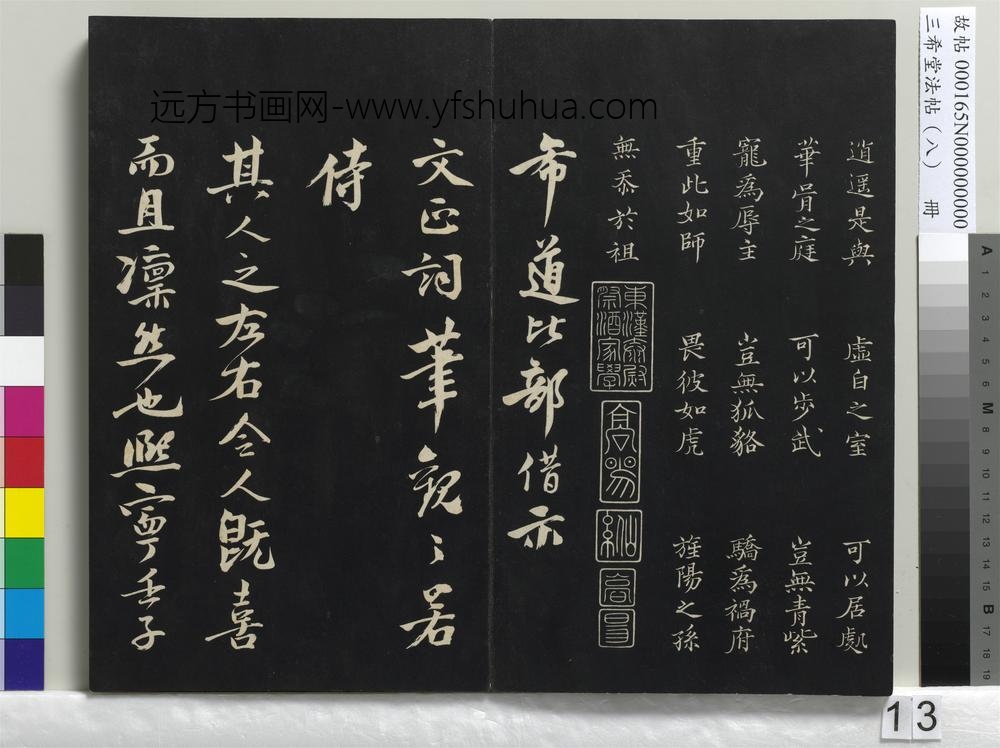 逍遥是與　虛自之室　可以居處
華胥之庭　可以步武　豈無青紫
寵爲辱主　豈無狐貉　驕爲禍府
重此如師　畏彼如虎　旌陽之孫
無忝於祖
東漢太尉祭酒家學
希道比部借示
文正詞筆觀之若
侍
其人之左右令人既喜
而且凜然也熙寧壬子
远方书画网-www.yfshuhua.com
故帖 000165N000000000
三希堂法帖（八） 冊
A 1 2 3 4 5 M 8 9 10 11 12 13 14 15 B 17 18 19
13